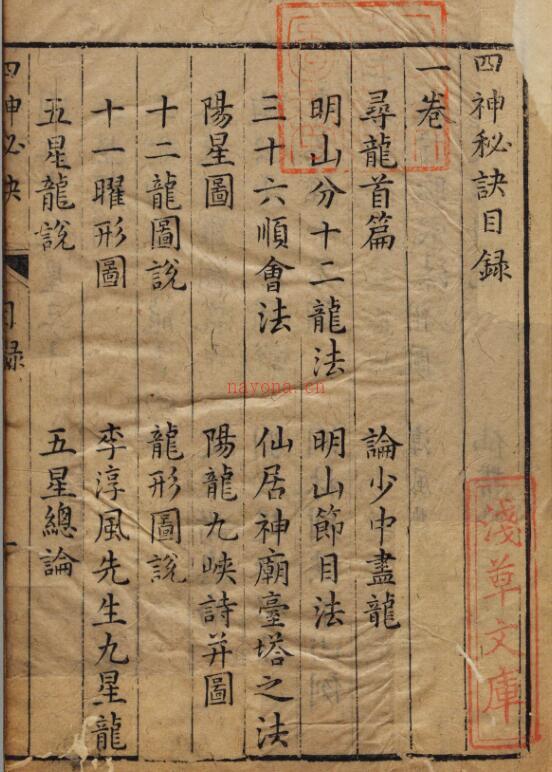 四神秘訣目録
一卷
尋龍首篇　論少中盡龍
明山分十二龍法　明山節目法
三十六順會法　仙居神廟臺塔之法
陽星圖　陽龍九峽詩并圖
十二龍圖說　龍形圖說
十一曜形圖　李淳風先生九星龍
五星龍說　五星總論
四神秘訣　目録
淺草文庫
nayona.cn